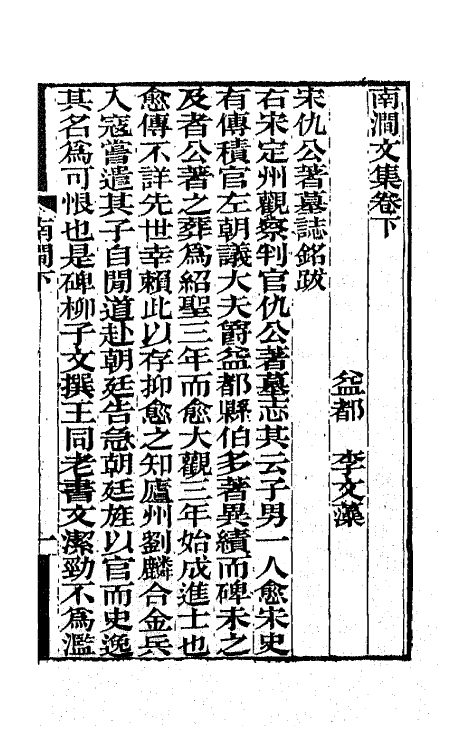 南澗文集卷下
益都　李文藻
宋仇公著墓誌銘跋
右宋定州觀察判官仇公著墓志其云子男一人愈宋史
有傳積官左朝議大夫爵益都縣伯多著異績而碑未之
及者公著之葬爲紹聖三年而愈大觀三年始成進士也
愈傳不詳先世幸賴此以存抑愈之知廬州劉麟合金兵
入寇嘗遣其子自閒道赴朝廷告急朝廷旌以官而史逸
其名爲可恨也是碑柳子文撰王同老書文潔勁不爲濫
南澗下
一